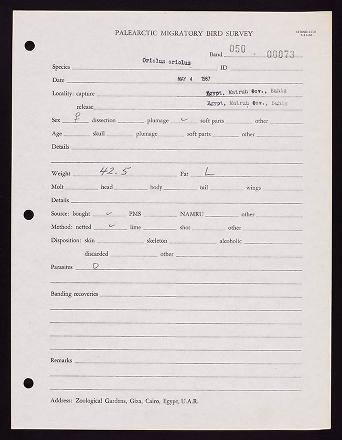 PALEARCTIC MIGRATORY BIRD SURVEY
Band 050 - 00073
Species Oriolus oriolus ID
Date MAY 4 1967
Locality: capture Egypt, Matruh Gov., Bahig
release Egypt, Matruh Gov., Bahig
Sex ♀ dissection plumage ✓ soft parts other
Age skull plumage soft parts other
Details
Weight 42.5 Fat L
Molt head body tail wings
Details
Source: bought ✓ PMS NAMRU other
Method: netted ✓ lime shot other
Disposition: skin skeleton alcoholic
discarded other
Parasites O
Banding recoveries
Remarks
Address: Zoological Gardens, Giza, Cairo, Egypt, U.A.R.